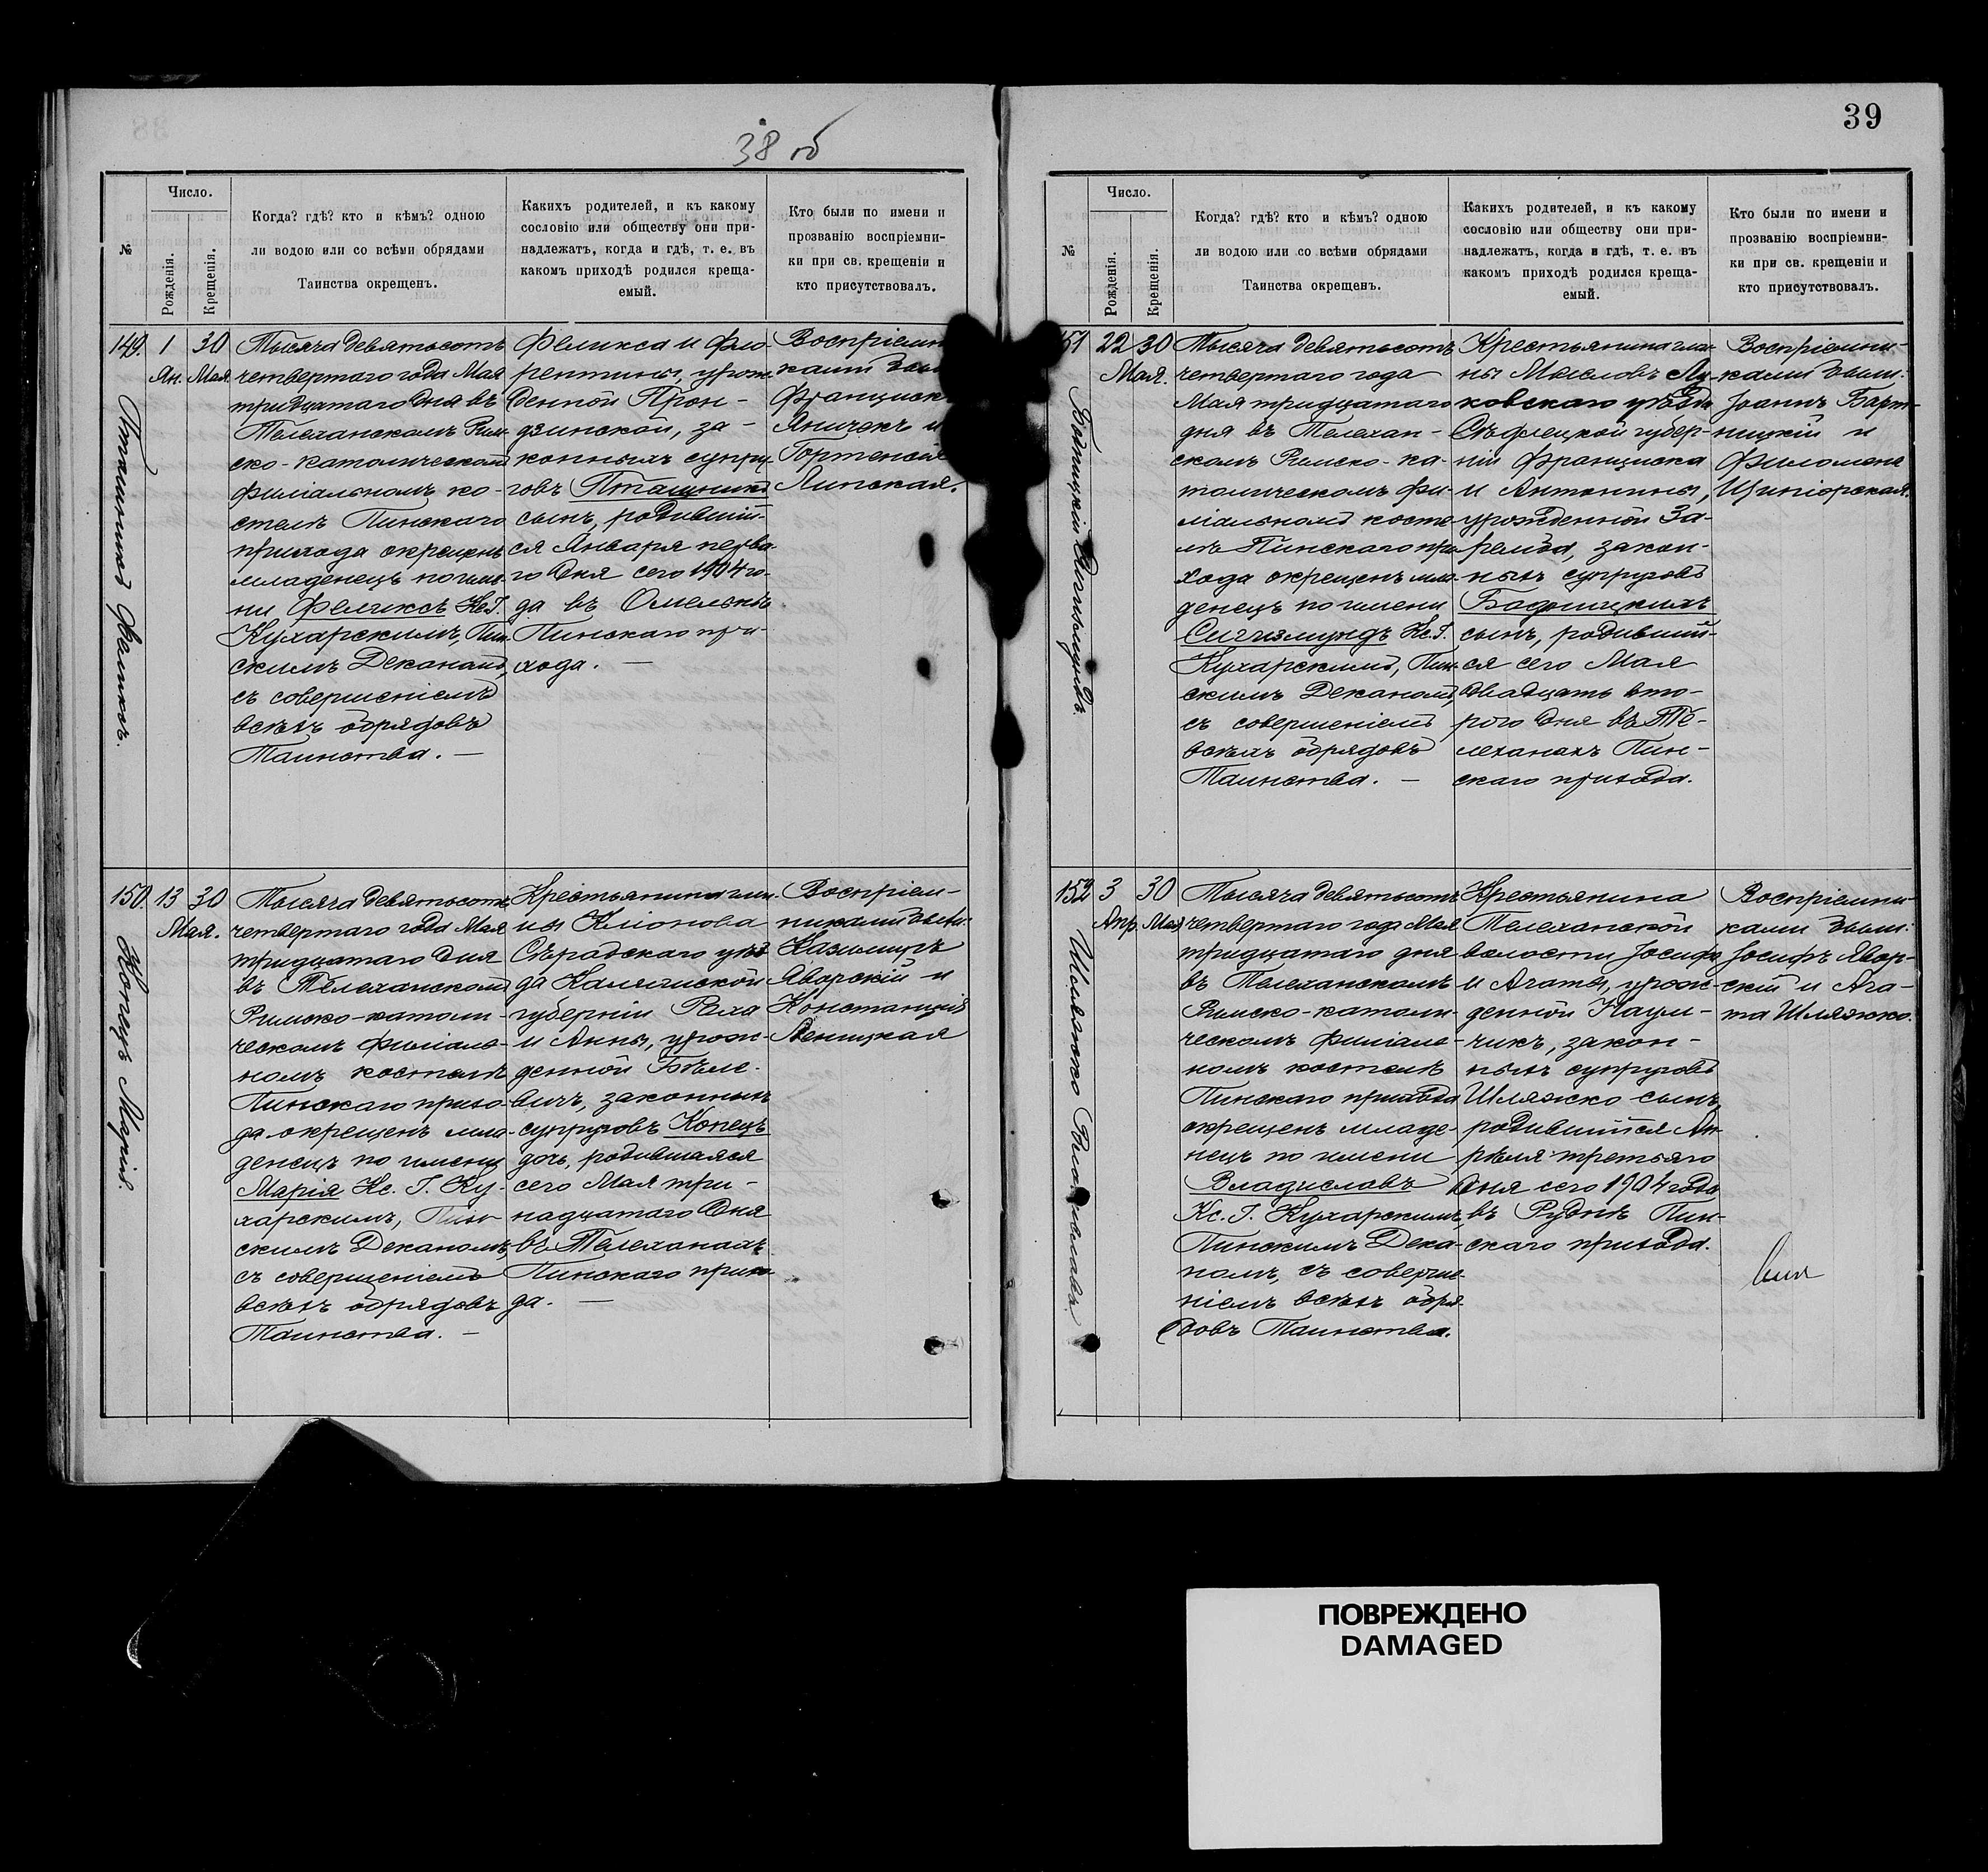 38 об
№
Число.
Рожденія.
Крещенія.
Когда? гдѣ? кто и кѣмъ? одною
ли водою или со всѣми обрядами
Таинства окрещенъ.
Какихъ родителей, и къ какому
сословію или обществу они при-
надлежатъ, когда и гдѣ, т. е. въ
какомъ приходѣ родился креща-
емый.
Кто были по имени и
прозванію воспріемни-
ки при св. крещеніи и
кто присутствовалъ.
149.
1
Ян.
30
Мая.
Феликсъ.
Тысяча девятьсотъ
четвертаго года Мая
тридцатаго дня въ
Телеханскомъ Рим-
ско-католическомъ
филіальномъ ко-
стелѣ Пинскаго
прихода окрещенъ
младенецъ по име-
ни Феликсъ Кс. І.
Кухарскимъ, Пин-
скимъ Деканомъ,
съ совершеніемъ
всѣхъ обрядовъ
Таинства. —
Феликса и Фло-
рентины, урож-
денной Прон-
дзинской, за-
конныхъ супру-
говъ
сынъ, родивший-
ся Января перва-
го дня сего 1904 го-
да въ
Пинскаго при-
хода. —
Воспріемн
ками
Францискъ
Яничекъ и
Гортенсія
Липская.
150.
13
30
Мая.
Конецъ Марія.
Тысяча девятьсотъ
четвертаго года Мая
тридцатаго дня
въ Телеханскомъ
Римско-католи-
ческомъ филіаль-
номъ костелѣ
Пинскаго прихо-
да окрещенъ мла-
денецъ по имени
Марія Кс. І. Ку-
харскимъ, Пин-
скимъ Деканомъ,
съ совершеніемъ
всѣхъ обрядовъ
Таинства. —
Крестьянина гми-
ны Кліонова
Сѣрадскаго уѣз
да Калишской
губерніи
и Анны, урож-
денной Бѣле-
вичъ, законныхъ
супруговъ Конецъ
дочь, родившаяся
сего Мая три-
надцатаго дня
въ Телеханахъ
Пинскаго прихо-
да. —
Воспріем-
никами были:
Казимиръ
Яворскій и
Констанція
39
№
Число.
Рожденія.
Крещенія.
Когда? гдѣ? кто и кѣмъ? одною
ли водою или со всѣми обрядами
Таинства окрещенъ.
Какихъ родителей, и къ какому
сословію или обществу они при-
надлежатъ, когда и гдѣ, т. е. въ
какомъ приходѣ родился креща-
емый.
Кто были по имени и
прозванію воспріемни-
ки при св. крещеніи и
кто присутствовалъ.
151
22
30
Мая.
Тысяча девятьсотъ
четвертаго года
Мая тридцатаго
дня въ Телехан-
скомъ Римско-ка-
толическомъ фи-
ліальномъ косте-
лѣ Пинскаго при-
хода окрещенъ мла-
денецъ по имени
Сигизмундъ Кс. І.
Кухарскимъ, Пин-
скимъ Деканомъ,
съ совершеніемъ
всѣхъ обрядовъ
Таинства. —
Крестьянина гми-
ны Мысловъ Лу-
ковскаго уѣзда
Сѣдлецкой губер-
ніи Франциска
и Антонины,
урожденной За-
ремба, закон-
ныхъ супруговъ
сынъ, родивший-
ся сего Мая
двадцать вто-
рого дня въ Те-
леханахъ Пин-
скаго прихода.
Воспріемни-
ками были:
Іоаннъ Барт-
ницкій и
Филомена
152
3
Апр.
30
Мая
Шляжко Владиславъ.
Тысяча девятьсотъ
четвертаго года Мая
тридцатаго дня
въ Телеханскомъ
Римско-католи-
ческомъ филіаль-
номъ костелѣ
Пинскаго прихода
окрещенъ младе-
нецъ по имени
Владиславъ
Кс. І. Кухарскимъ,
Пинскимъ Дека-
номъ, съ соверше-
ніемъ всѣхъ обря-
довъ Таинства.
Крестьянина
Телеханской
волости Іосифа
и Агаты, урож-
денной Наум-
чикъ, закон-
ныхъ супруговъ
Шляжко сынъ,
родившийся Ап-
рѣля третьяго
дня сего 1904 года
въ Руднѣ Пин-
скаго прихода.
Воспріемни-
ками были:
Іосифъ Явор-
скій и Ага-
та Шляжко.
ПОВРЕЖДЕНО
DAMAGED